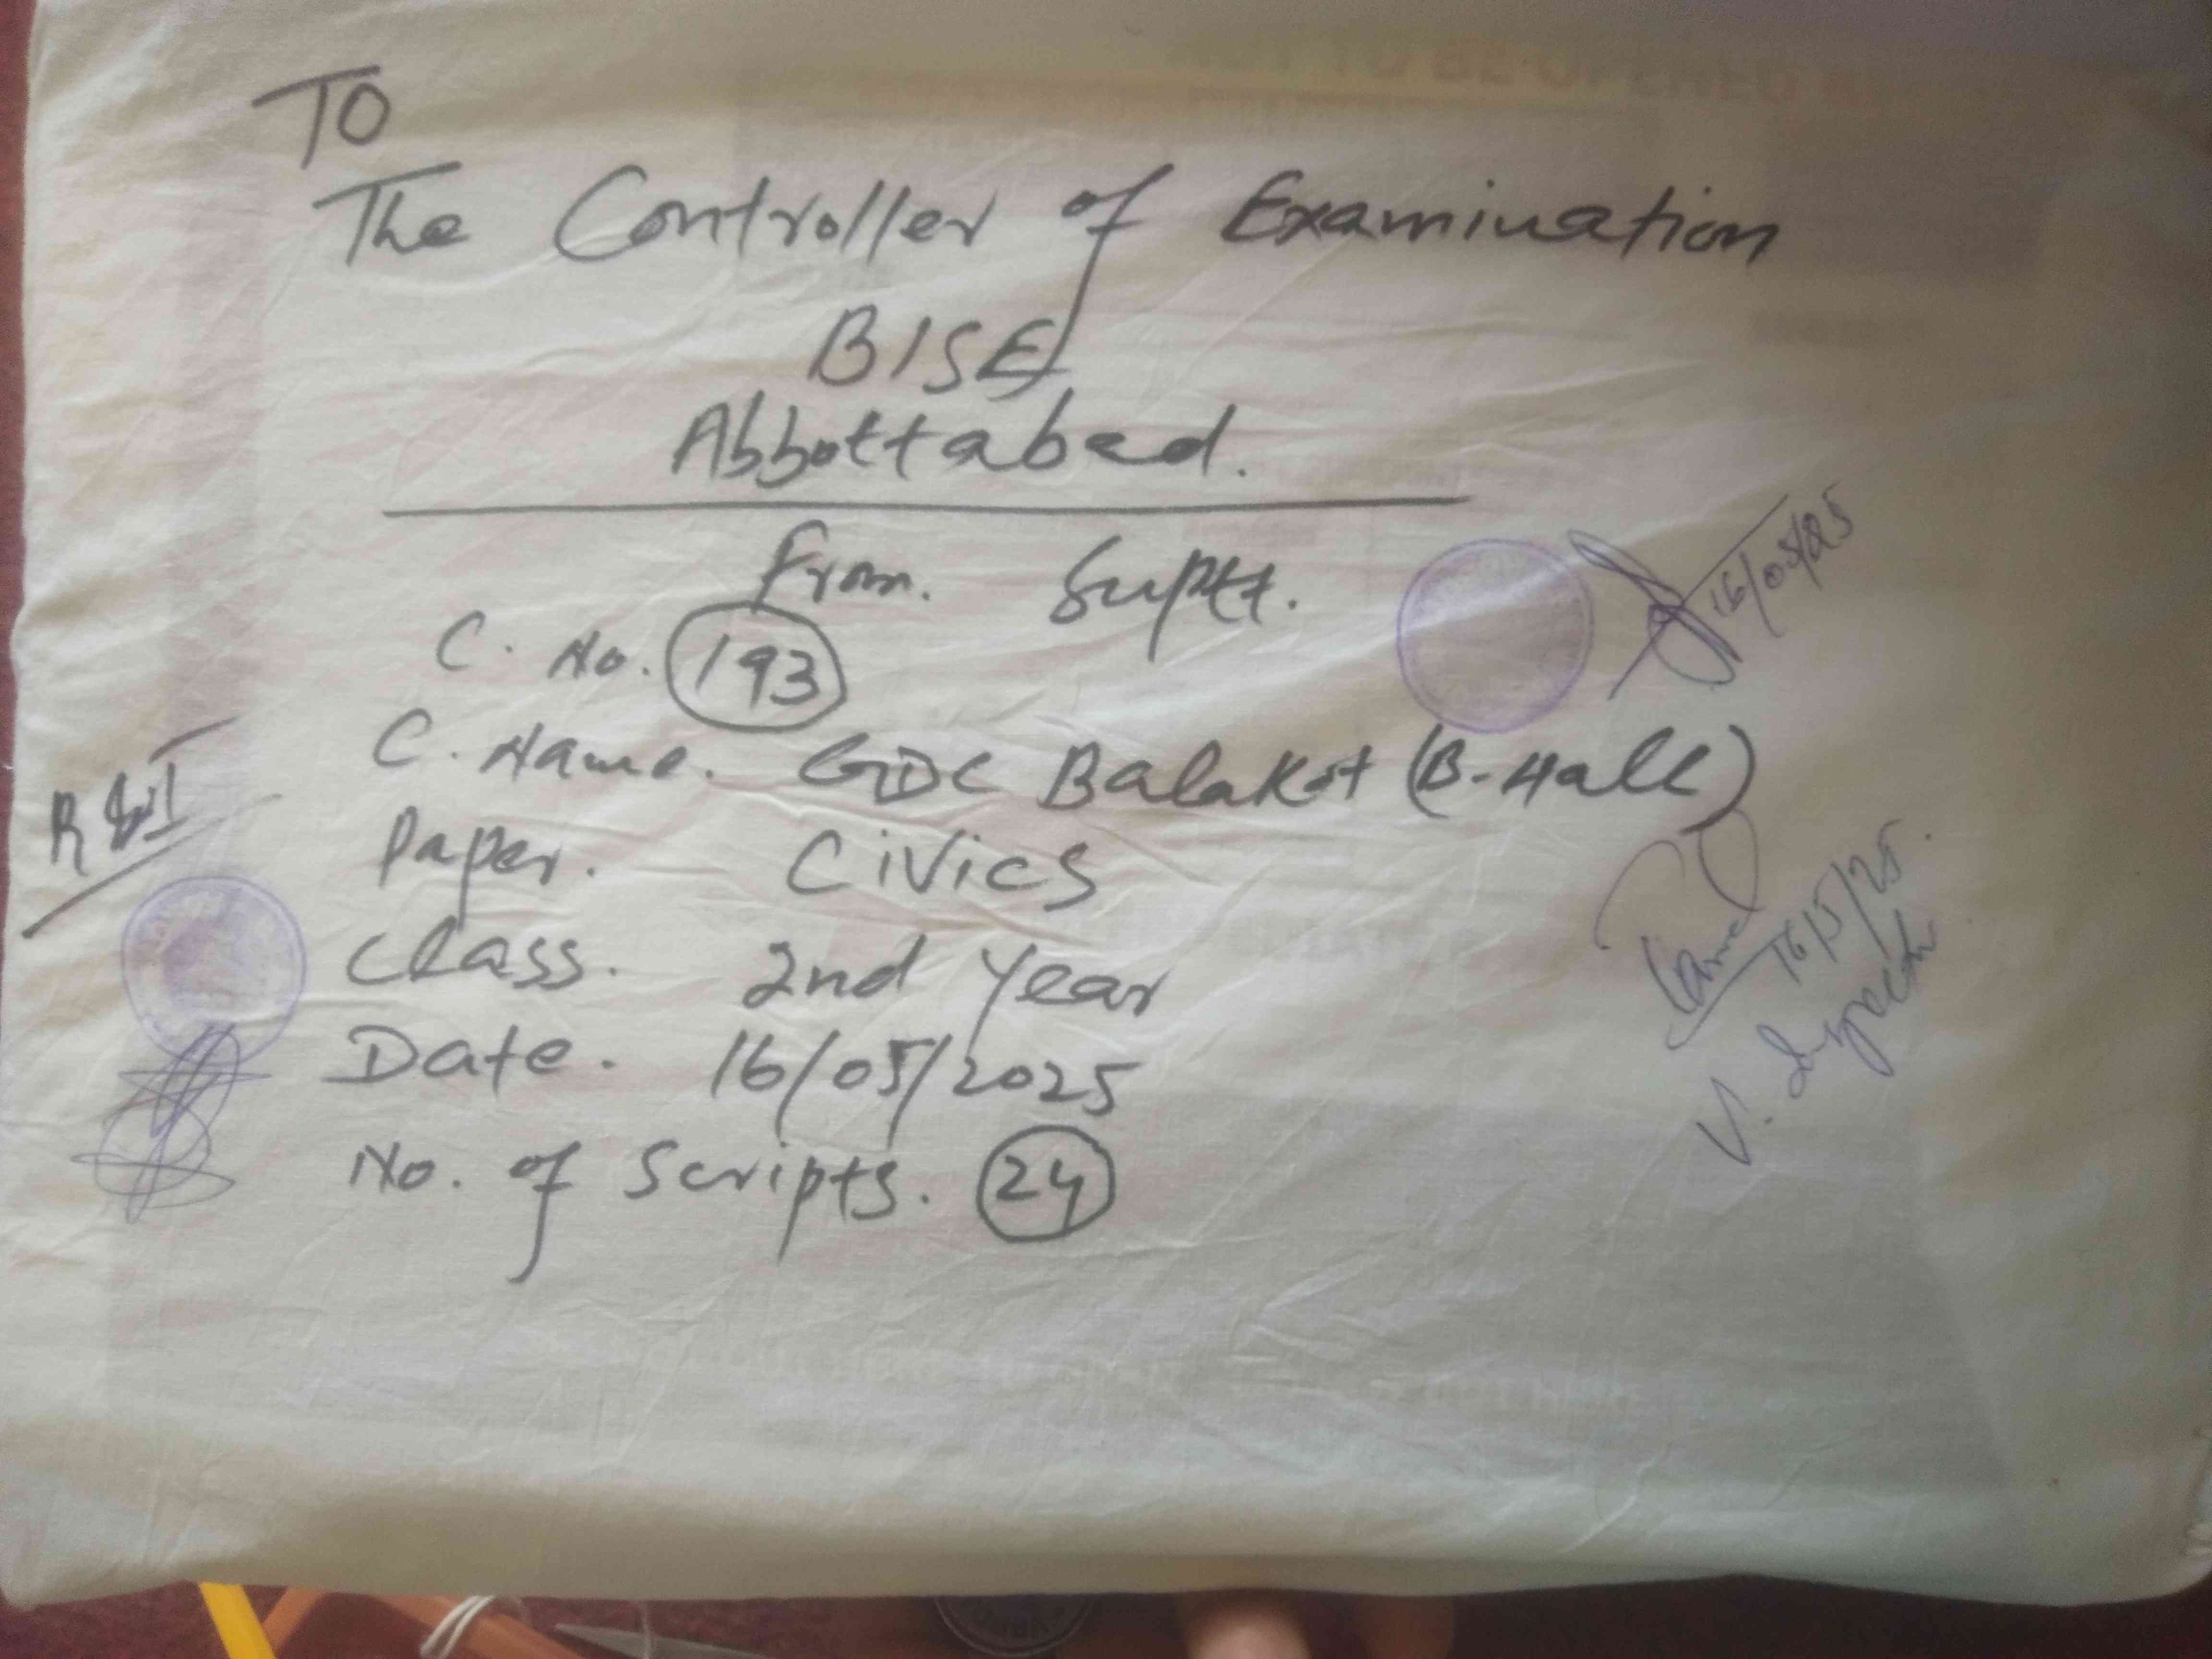 TO
The Controller of Examination
BISE
Abbottabad.
From. Suptt.
16/05/25
C. No. 193
C. Name. GDC Balakot (B-Hall)
R & I
Paper. Civics
Class. 2nd Year
16/5/25.
V. Inspector
Date. 16/05/2025
No. of Scripts. 24